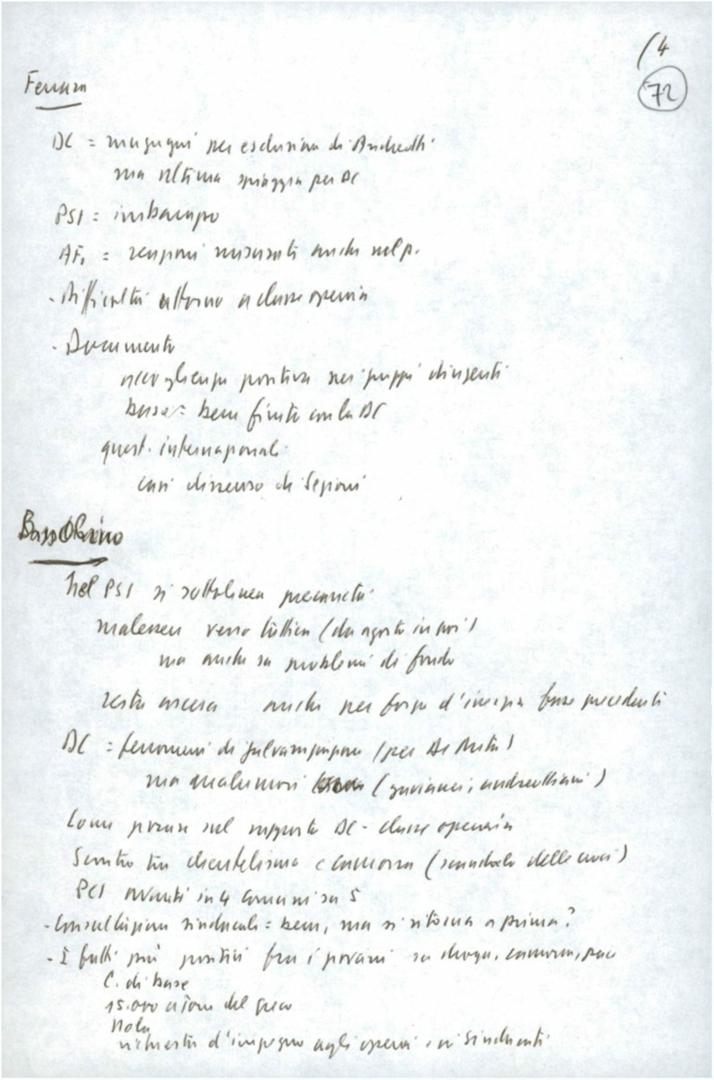 /4
72
Ferrara
DC = mugugni per esclusione di Andreotti
ma ultima spiaggia per DC
PSI = imbarazzo
AF. = reazioni anche nel p.
- Difficoltà attorno a classe operaia
- Documento
accoglienza positiva nei gruppi dirigenti
base = bene finita con la DC
quest. internazionale
casi dissenso di Sezioni
Bassolino
Nel PSI si sottolinea precarietà
malessere verso (da agosto in poi)
ma anche su problemi di fondo
resta ancora anche per forza d'inerzia fase precedente
DC = fenomeni di galvanizzazione (per De Mita)
ma malumori (gavianei, andreottiani)
Come pesare sul rapporto DC - classe operaia
Scontro tra clientelismo e camorra (scandalo delle cave)
PCI avanti in 4 comuni su 5
- Consultazione sindacale = bene, ma si ritorna a prima?
- I fatti più positivi fra i giovani su droga, camorra, pace
C. di base
15.000 a Torre del Greco
Nola
richiesta d'impegno agli operai e ai sindacati